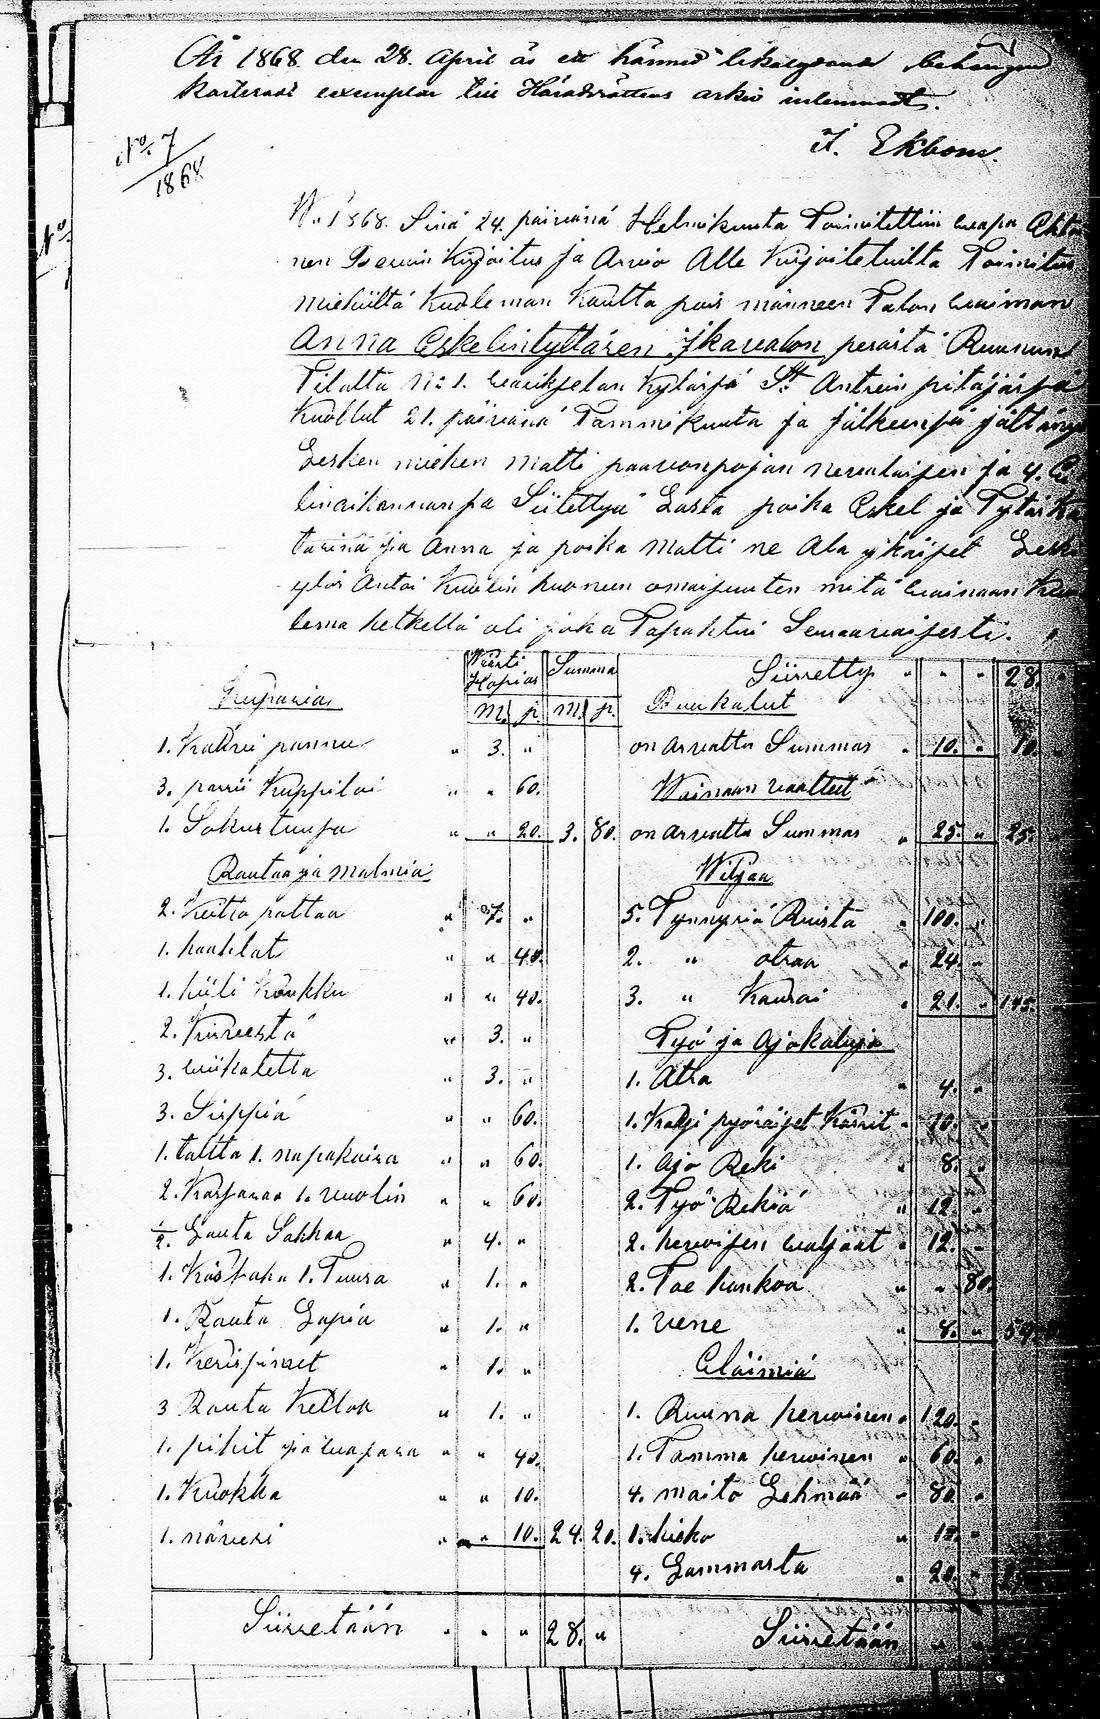 År 1868 den 28. April är ett härmed likalydande behörigen
karteradt exemplar till Häradsrättens arkiv inlemnadt.
F. Ekbom.
No. 7
1868
W. 1868. Sinä 24. päivänä Helmikuuta Toimitettiin
nen Kirjoitus ja Arvio Alle Kirjoitetuilta Toimitus
miehiltä Kuoleman Kautta pois männeen Talon waiman
Anna Eskelintyttären Ikävalon perästä Ruunun
Tilalta No 1. Kyläsä St Antrein pitäjäsä
Kuollut 21. päivänä Tammikuuta ja jälkeensä jättäny
Lesken miehen Matti paavonpojan ja 4.
Siitettyä Lasta poika Eskel ja Tytär Ka
tarina ja Anna ja poika Matti ne Ala ikäiset Lesk
ylös Antoi Kuolin huoneen omaisuuten mitä wainaan Kuo
lema hetkellä oli joka Tapahtui Seuraavaisesti.
Wiisti Hopias Summa
m. p. m. p.
Kuparia
1. Kahvi pannu " 3. "
3. parii Kuppiloi " " 60.
1. Sokurtuusa " " 20. 3. 80.
Rautaa ja Malmia
2. Keitto pattaa " 7. "
1. haahlat " " 40.
1. hiili Koukku " " 40.
2. Kirvestä " 3. "
3. wiikatetta " 3. "
3. Sirppiä " " 60.
1. taltta 1. napakaira " " 60.
2. Kärsänää 1. vuolin " " 60.
1/2. Lauta Sakkaa " 4. "
1. Kässaha 1. Tuura " 1. "
1. Rauta Lapia " 1. "
1. Kerisimet " 1. "
3 Rauta Kettoa " 1. "
1. pihit ja wasara " " 40.
1. Kuokka " " 10.
1. näveri " " 10. 24. 20.
Siirretään " " " 28. "
Siirretty " " " 28. "
Puukalut
on arvattu Summas " 10. " 10. "
Wainaan vaatteet
on arvattu Summas " 25. " 25. "
Wiljaa
5. Tynnyriä Ruista " 100. "
2. " otraa " 24. "
3. " Kauroi " 21. " 145.
Työ ja Ajokaluja
1. Atra " 4. "
1. Kaksi pyöräiset Kärrit " 10. "
1. Ajo Reki " 8. "
2. Työ Rekiä " 12. "
2. hevoisen waljaat " 12. "
2. Tae hankoa " " 80.
1. Vene " 8. "
Eläimiä
1. Ruuna hevoinen " 120. "
1. Tamma hevoinen " 60. "
4. maito Lehmää " 80. "
1. hieho " 12. "
4. Lammasta " 20. "
Siirretään " "